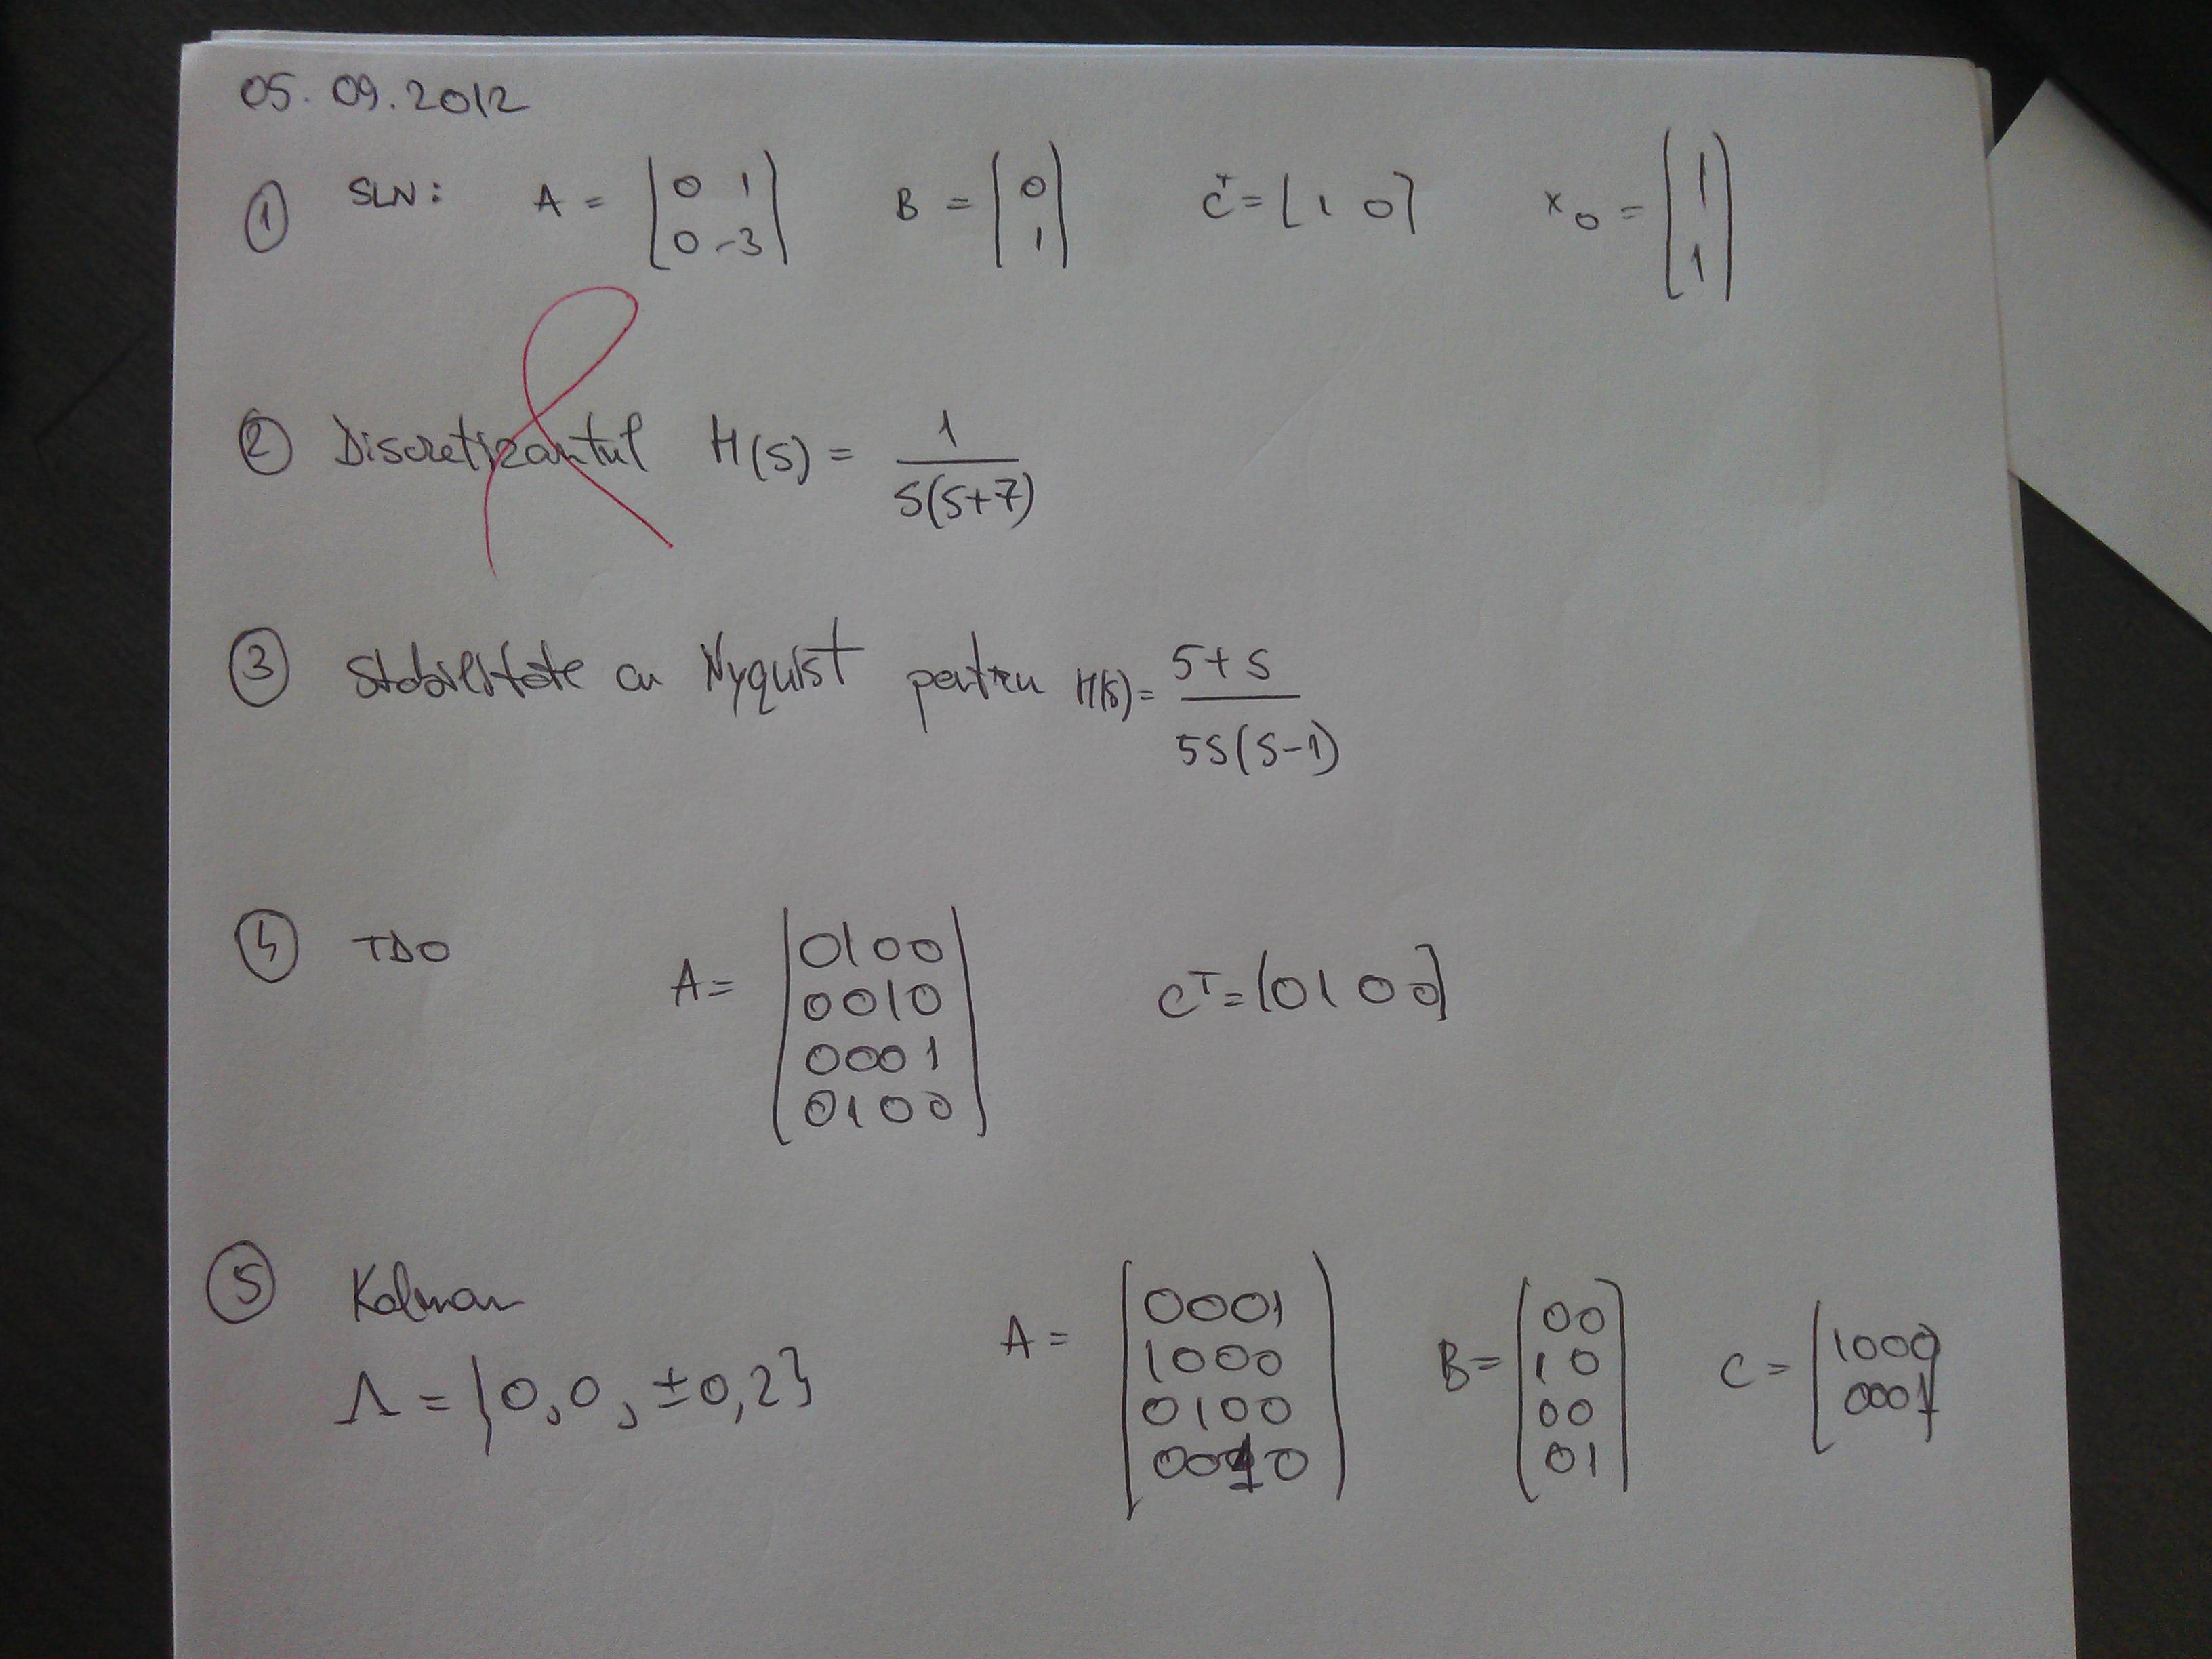 05.09.2012
① SLN: A = [0 1
0 -3] B = [0
1] cᵀ = [1 0] x₀ = [1
1]
② Discretizantul H(s) = 1
s(s+7)
③ Stabilitate cu Nyquist pentru H(s) = 5+s
5s(s-1)
④ TDO A = [0100
0010
0001
0100] cᵀ = [0100]
⑤ Kalman
Λ = {0,0, ±0,2}
A = [0001
1000
0100
0010] B = [00
10
00
01] C = [1000
0001]